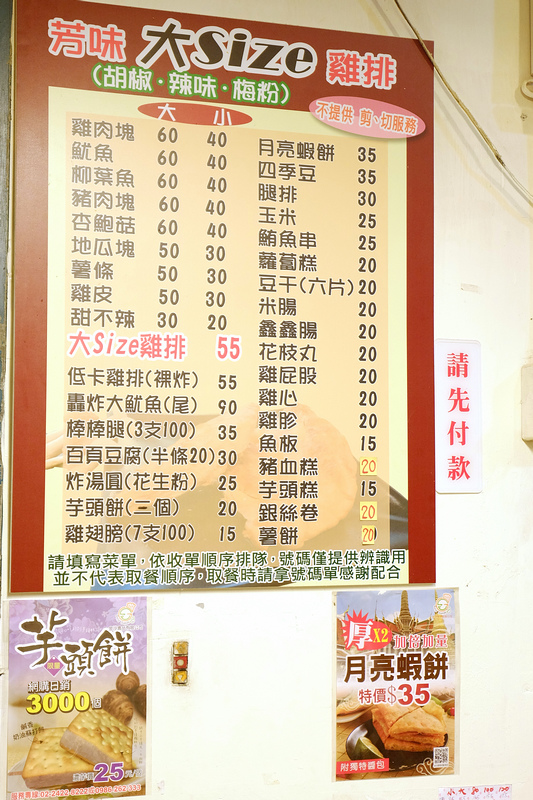 芳味 大Size 雞排
(胡椒·辣味·梅粉)
不提供 剪、切服務
大 小
雞肉塊 60 40
魷魚 60 40
柳葉魚 60 40
豬肉塊 60 40
杏鮑菇 60 40
地瓜塊 50 30
薯條 50 30
雞皮 50 30
甜不辣 30 20
大Size雞排 55
低卡雞排(裸炸) 55
轟炸大魷魚(尾) 90
棒棒腿(3支100) 35
百頁豆腐(半條20) 30
炸湯圓(花生粉) 25
芋頭餅(三個) 20
雞翅膀(7支100) 15
月亮蝦餅 35
四季豆 35
腿排 30
玉米 25
鮪魚串 25
蘿蔔糕 20
豆干(六片) 20
米腸 20
鑫鑫腸 20
花枝丸 20
雞屁股 20
雞心 20
雞胗 20
魚板 15
豬血糕 20
芋頭糕 15
銀絲卷 20
薯餅 20
請填寫菜單,依收單順序排隊,號碼僅提供辨識用
並不代表取餐順序,取餐時請拿號碼單感謝配合
請先付款
芋頭餅
網購日銷
3000個
25元
厚X2 加倍加量
月亮蝦餅
特價$35
附獨特醬包